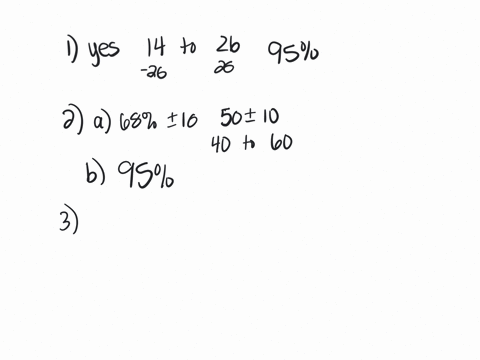 1) yes 14 to 26 95%
-2σ 2σ
2) a) 68% ±1σ 50 ± 10
40 to 60
b) 95%
3)